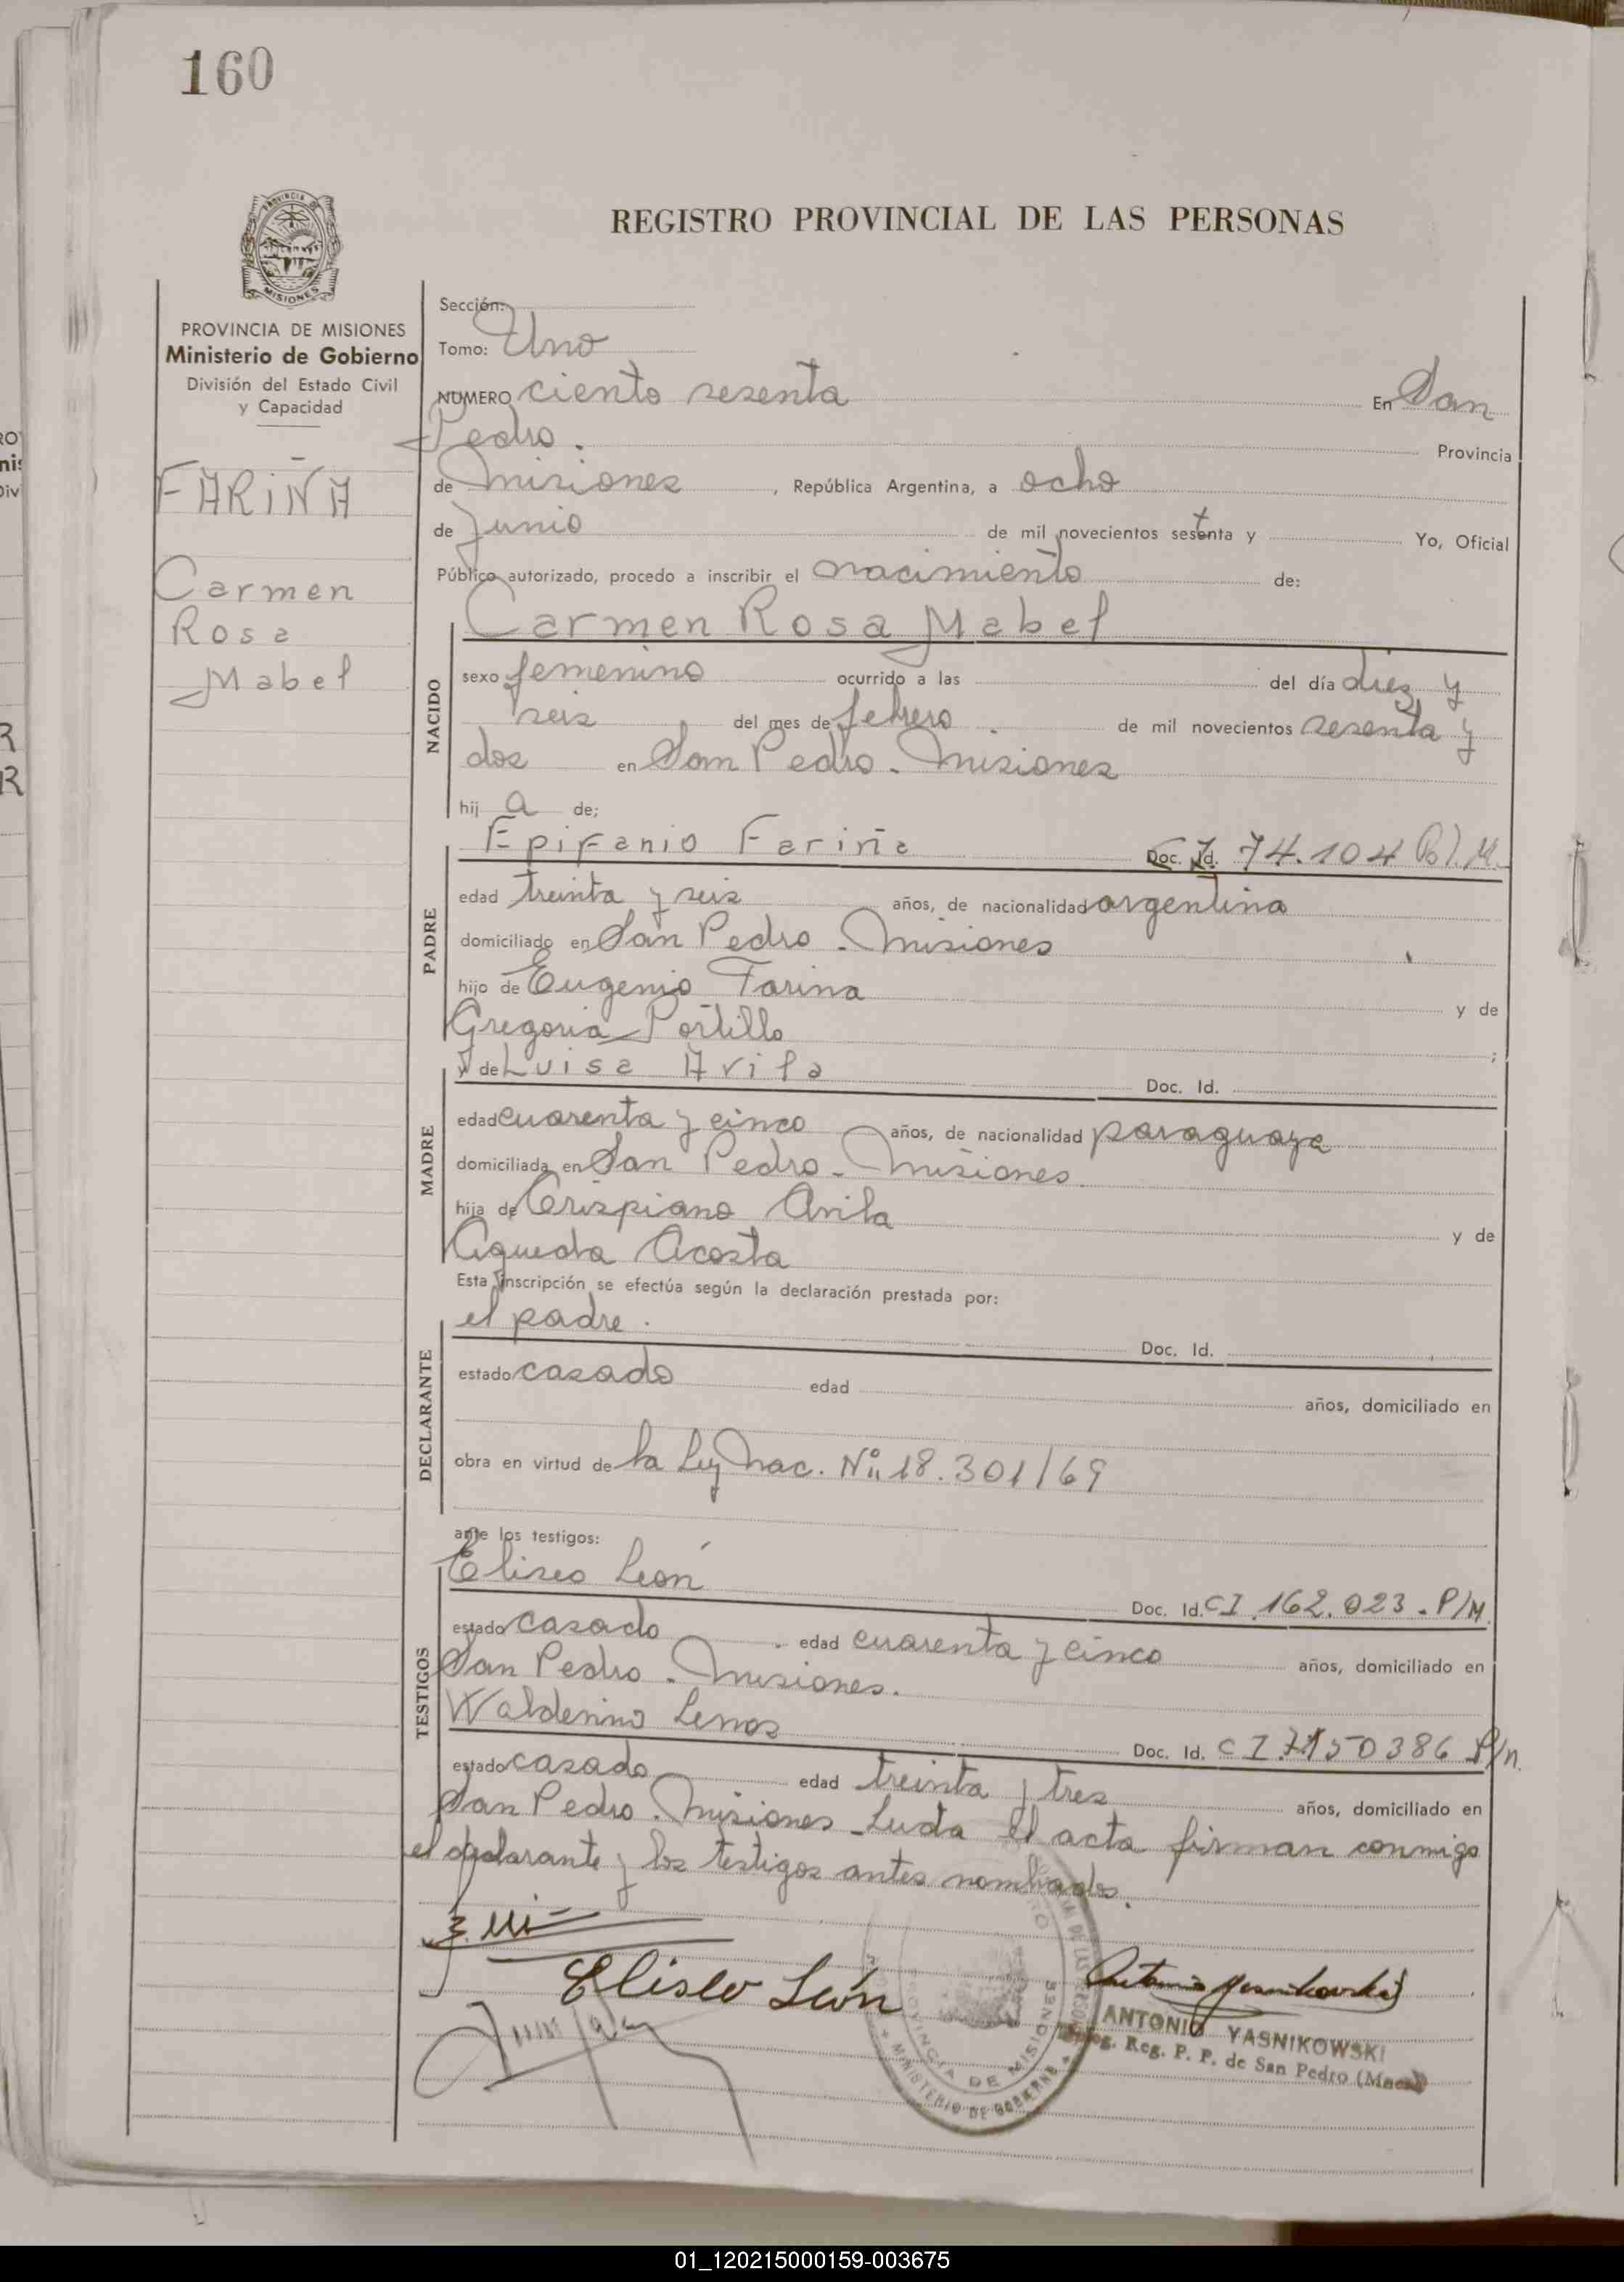 160
PROVINCIA DE
MISIONES
PROVINCIA DE MISIONES
Ministerio de Gobierno
División del Estado Civil
y Capacidad
FARIÑA
Carmen
Rosa
Mabel
REGISTRO PROVINCIAL DE LAS PERSONAS
Sección:
Tomo: Uno
NUMERO ciento sesenta En San
Pedro. Provincia
de Misiones, República Argentina, a ocho
de Junio de mil novecientos setenta y Yo, Oficial
Público autorizado, procedo a inscribir el nacimiento de:
Carmen Rosa Mabel
NACIDO
sexo femenino ocurrido a las del día diez y
seis del mes de febrero de mil novecientos sesenta y
dos en San Pedro - Misiones
hij a de;
PADRE
Epifanio Fariña Doc. Id. 74.104 Pol. M.
edad treinta y seis años, de nacionalidad argentina
domiciliado en San Pedro - Misiones
hijo de Eugenio Farina y de
Gregoria Portillo ;
MADRE
y de Luisa Avila Doc. Id.
edad cuarenta y cinco años, de nacionalidad paraguaya
domiciliada en San Pedro - Misiones.
hija de Crispiano Avila y de
Agueda Acosta
Esta inscripción se efectúa según la declaración prestada por:
DECLARANTE
el padre. Doc. Id.
estado casado edad años, domiciliado en
obra en virtud de la Ley Nac. Nº 18.301/69
ante los testigos:
TESTIGOS
Eliseo León Doc. Id. CI 162.023 - P/M.
estado casado edad cuarenta y cinco años, domiciliado en
San Pedro - Misiones.
Lemos Doc. Id. CI 7150386 P/n.
estado casado edad treinta y tres años, domiciliado en
San Pedro - Misiones - Leida el acta firman conmigo
el declarante y los testigos antes nombrados.
Eliseo León
Antonio Yasnikowski
ANTONIO YASNIKOWSKI
Reg. P. P. de San Pedro (Mnes)
PROVINCIA DE MISIONES
MINISTERIO DE GOBIERNO
01_120215000159-003675